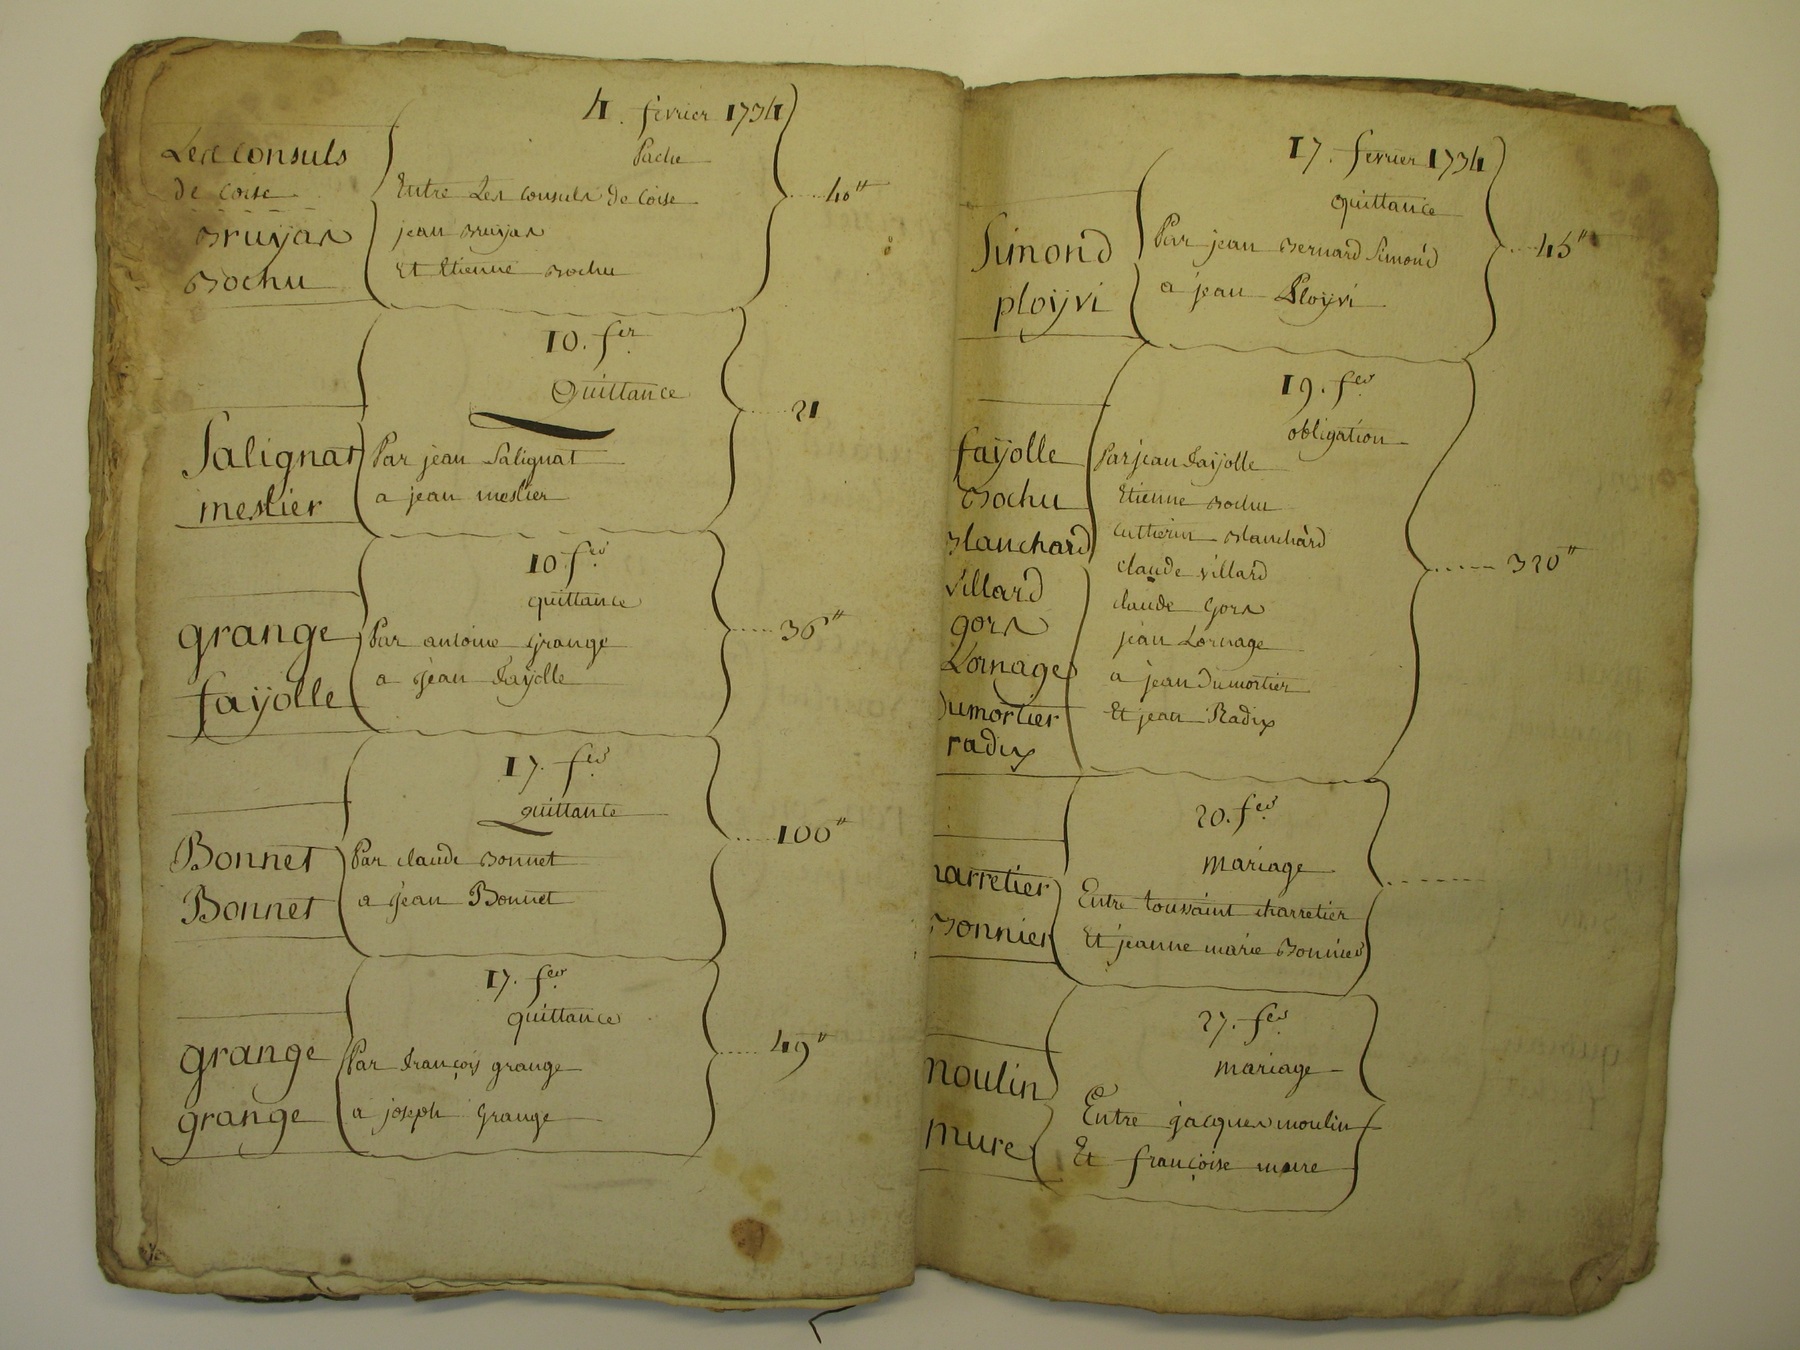 4. fevrier 1734
Les consuls
de coise
Bruyas
Bochu
Pache
Entre Les consuls de Coise
jean Bruyas
Et Etienne Bochu
40"
10. fer
Quittance
Salignat
mestier
Par jean Salignat
a jean mestier
21
10 fer
quittance
grange
faÿolle
Par antoine Grange
a jean faÿolle
36"
17. fer
quittance
Bonnet
Bonnet
Par claude Bonnet
a jean Bonnet
100"
17. fer
quittance
grange
grange
Par françois grange
a joseph Grange
49"
17. fevrier 1734
quittance
Simond
ploÿvi
Par jean Bernard Simond
a jean Ploÿvi
45"
19. fer
obligation
faÿolle
Bochu
Blanchard
Villard
gors
Lornage
Dumortier
radix
Par jean faÿolle
Etienne Bochu
Blanchard
claude villard
claude Gors
jean Lornage
a jean Dumortier
Et jean Radix
320"
20. fer
mariage
harretier
Bonnier
Entre toussaint charretier
Et jeanne marie Bonnier
27. fer
mariage
moulin
mure
Entre jacques moulin
Et françoise mure